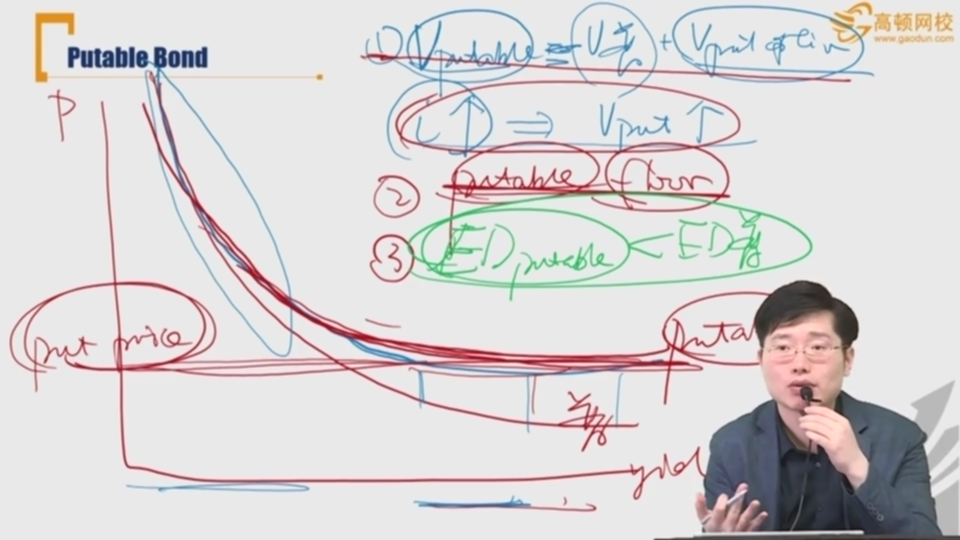 Putable Bond
高顿网校
www.gaodun.com
① Vputable = V普 + Vput option
i↑ ⇒ Vput↑
② putable floor
③ EDputable < ED普
P
put price
puta
普
yield